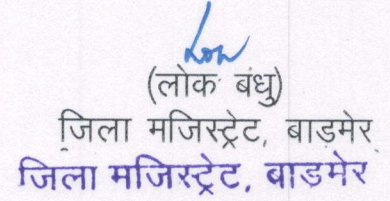 (लोक बंधु)
जिला मजिस्ट्रेट, बाड़मेर
जिला मजिस्ट्रेट, बाड़मेर